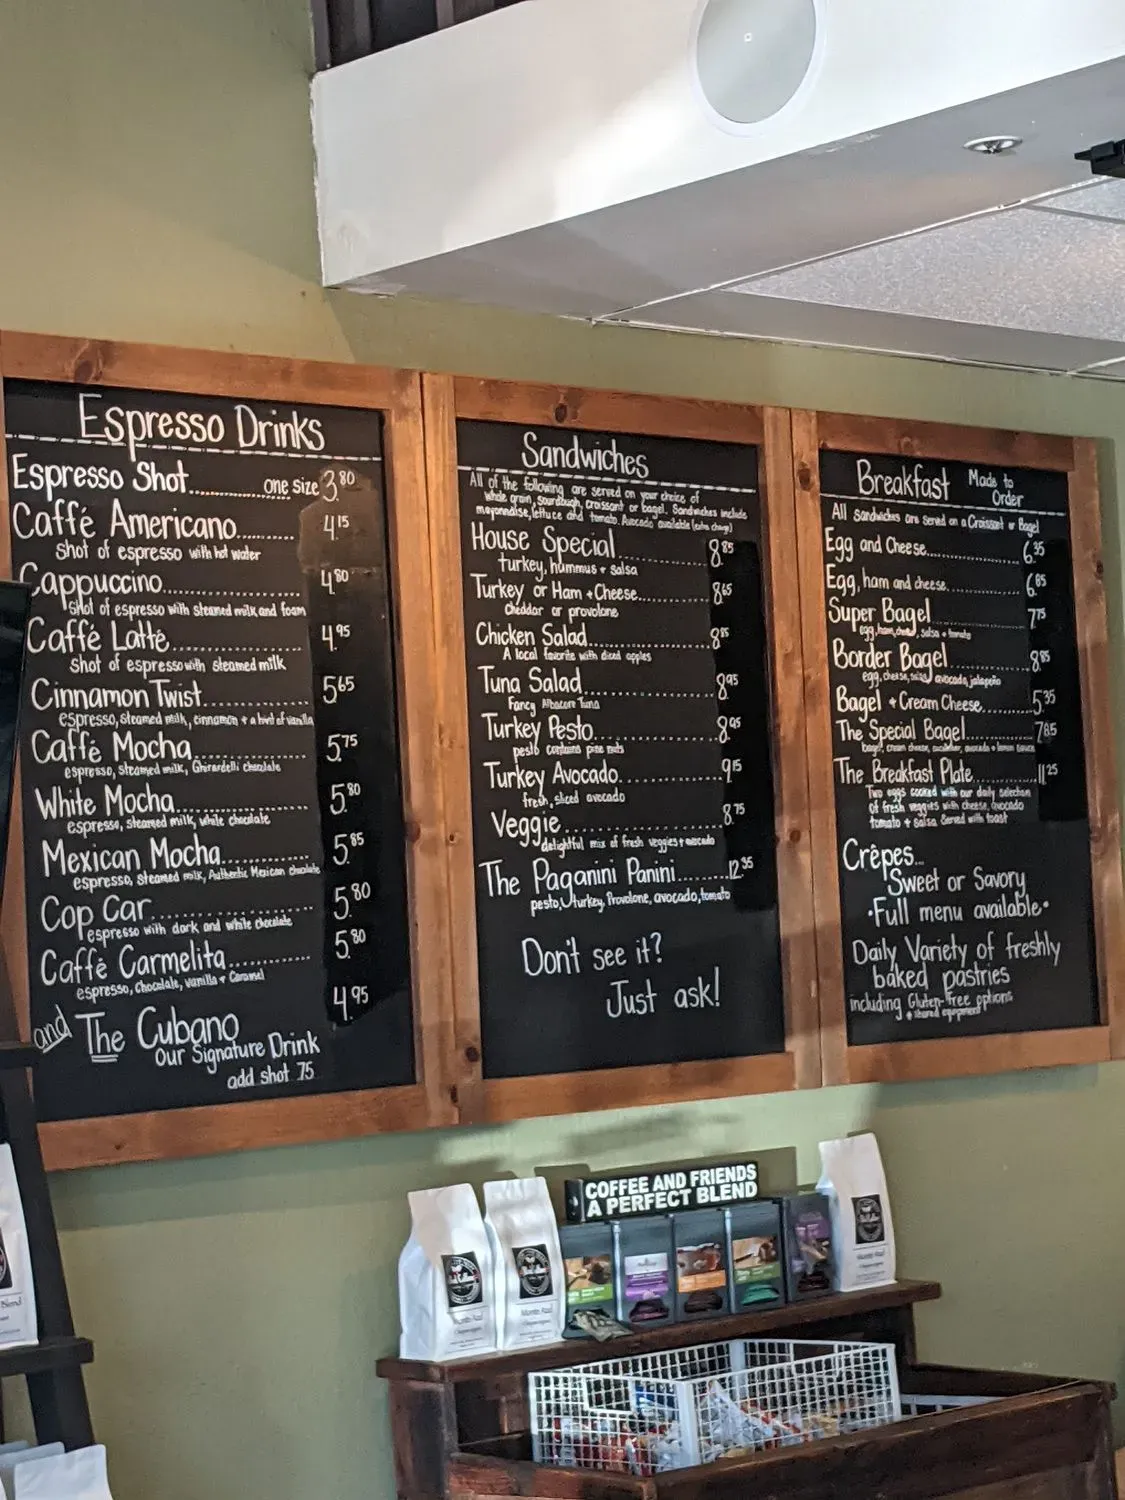 Espresso Drinks
Espresso Shot one size 3.80
Caffé Americano 4.15
shot of espresso with hot water
Cappuccino 4.80
shot of espresso with steamed milk and foam
Caffé Latté 4.95
shot of espresso with steamed milk
Cinnamon Twist 5.65
espresso, steamed milk, cinnamon + a hint of vanilla
Caffé Mocha 5.75
espresso, steamed milk, Ghirardelli chocolate
White Mocha 5.80
espresso, steamed milk, white chocolate
Mexican Mocha 5.85
espresso, steamed milk, Authentic Mexican chocolate
Cop Car 5.80
espresso with dark and white chocolate
Caffé Carmelita 5.80
espresso, chocolate, vanilla + Caramel
and The Cubano 4.95
our Signature Drink
add shot .75
Sandwiches
All of the following are served on your choice of
whole grain, sourdough, croissant or bagel. Sandwiches include
mayonnaise, lettuce and tomato. Avocado available (extra charge)
House Special 8.85
turkey, hummus + salsa
Turkey or Ham + Cheese 8.65
cheddar or provolone
Chicken Salad 8.85
A local favorite with diced apples
Tuna Salad 8.95
Fancy Albacore Tuna
Turkey Pesto 8.95
pesto contains pine nuts
Turkey Avocado 9.15
fresh, sliced avocado
Veggie 8.75
delightful mix of fresh veggies + avocado
The Paganini Panini 12.95
pesto, turkey, Provolone, avocado, tomato
Don't see it?
Just ask!
Breakfast Made to
Order
All sandwiches are served on a Croissant or Bagel
Egg and Cheese 6.35
Egg, ham and cheese 6.85
Super Bagel 7.75
egg, ham, cheese, salsa + tomato
Border Bagel 8.85
egg, cheese, salsa, avocado, jalapeño
Bagel + Cream Cheese 5.35
The Special Bagel 7.85
bagel, cream cheese, cucumber, avocado + lemon sauce
The Breakfast Plate 11.25
Two eggs cooked with our daily selection
of fresh veggies with cheese, avocado
tomato + salsa served with toast
Crêpes...
Sweet or Savory
•Full menu available•
Daily Variety of freshly
baked pastries
including Gluten-Free options
* shared equipment
COFFEE AND FRIENDS
A PERFECT BLEND
Blend